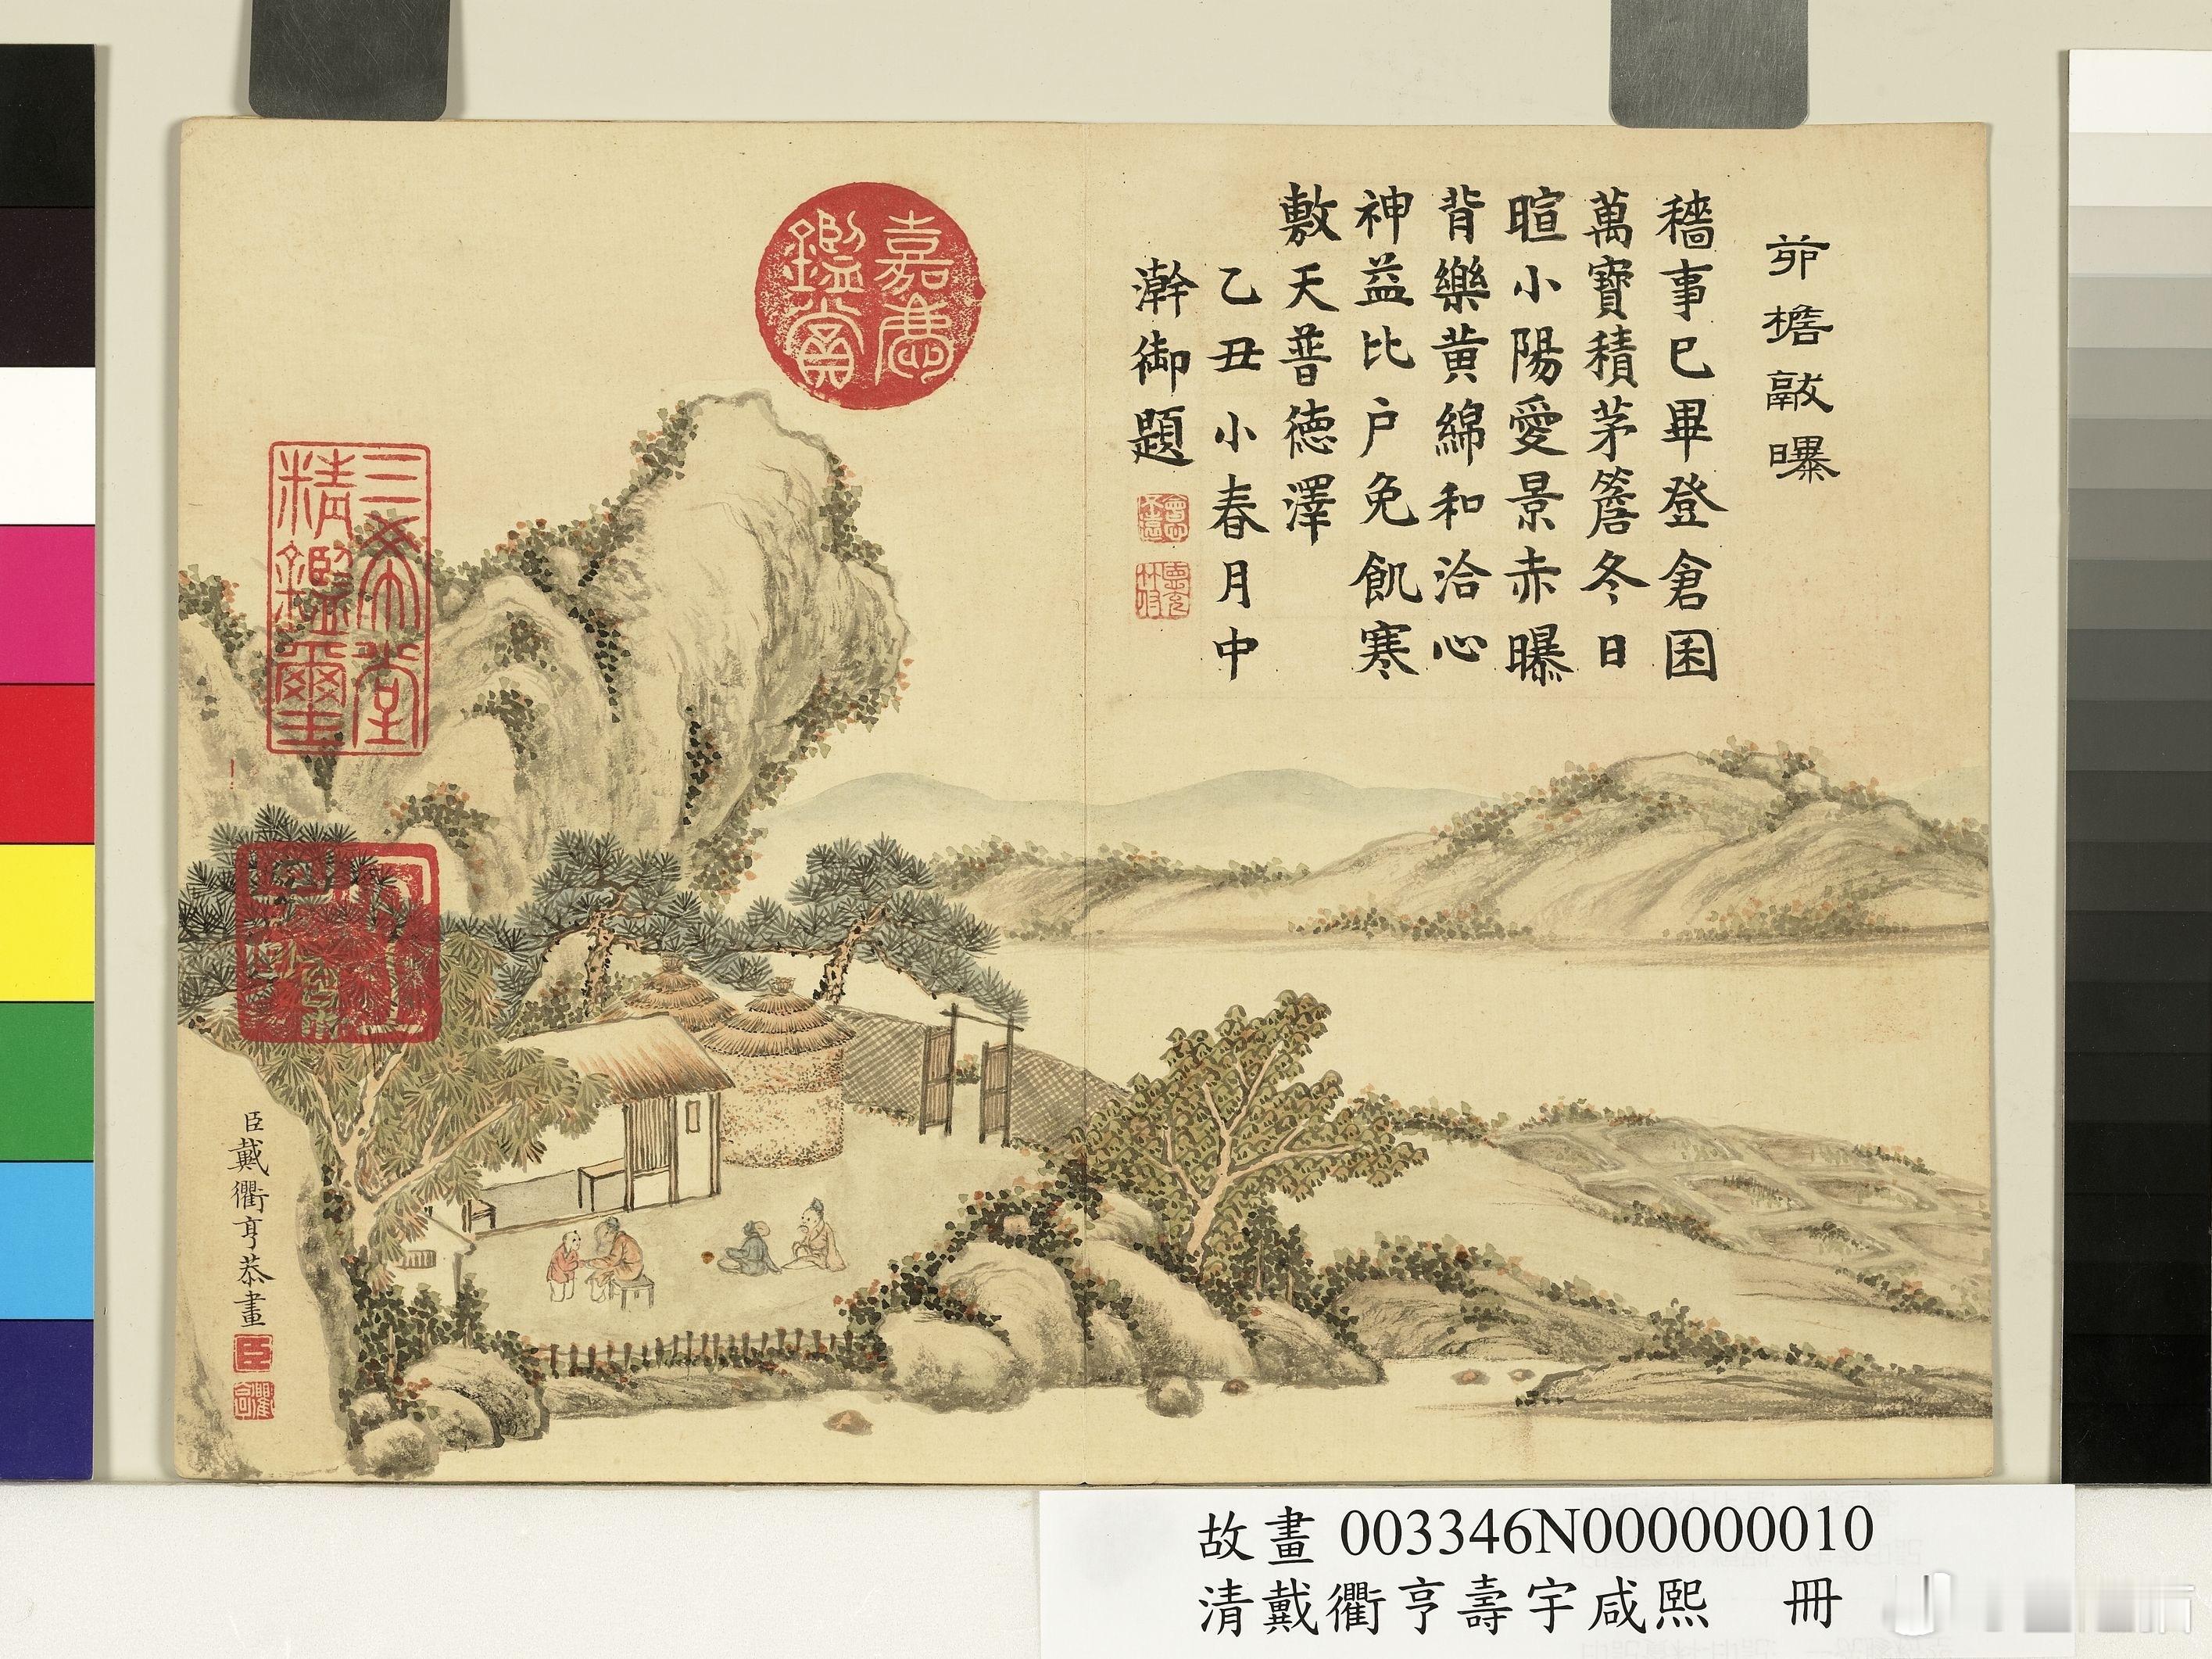 茆檐敲曝
穡事已畢登倉囷
萬寶積茅簷冬日
暄小陽愛景赤曝
背樂黃綿和洽心
神益比户免飢寒
敷天普德澤
乙丑小春月中
澣御題
嘉慶
鑑賞
三希堂
精鑑璽
宜
子孫
臣戴衢亨恭畫
臣
衢亨
故畫 003346N000000010
清戴衢亨壽宇咸熙 冊